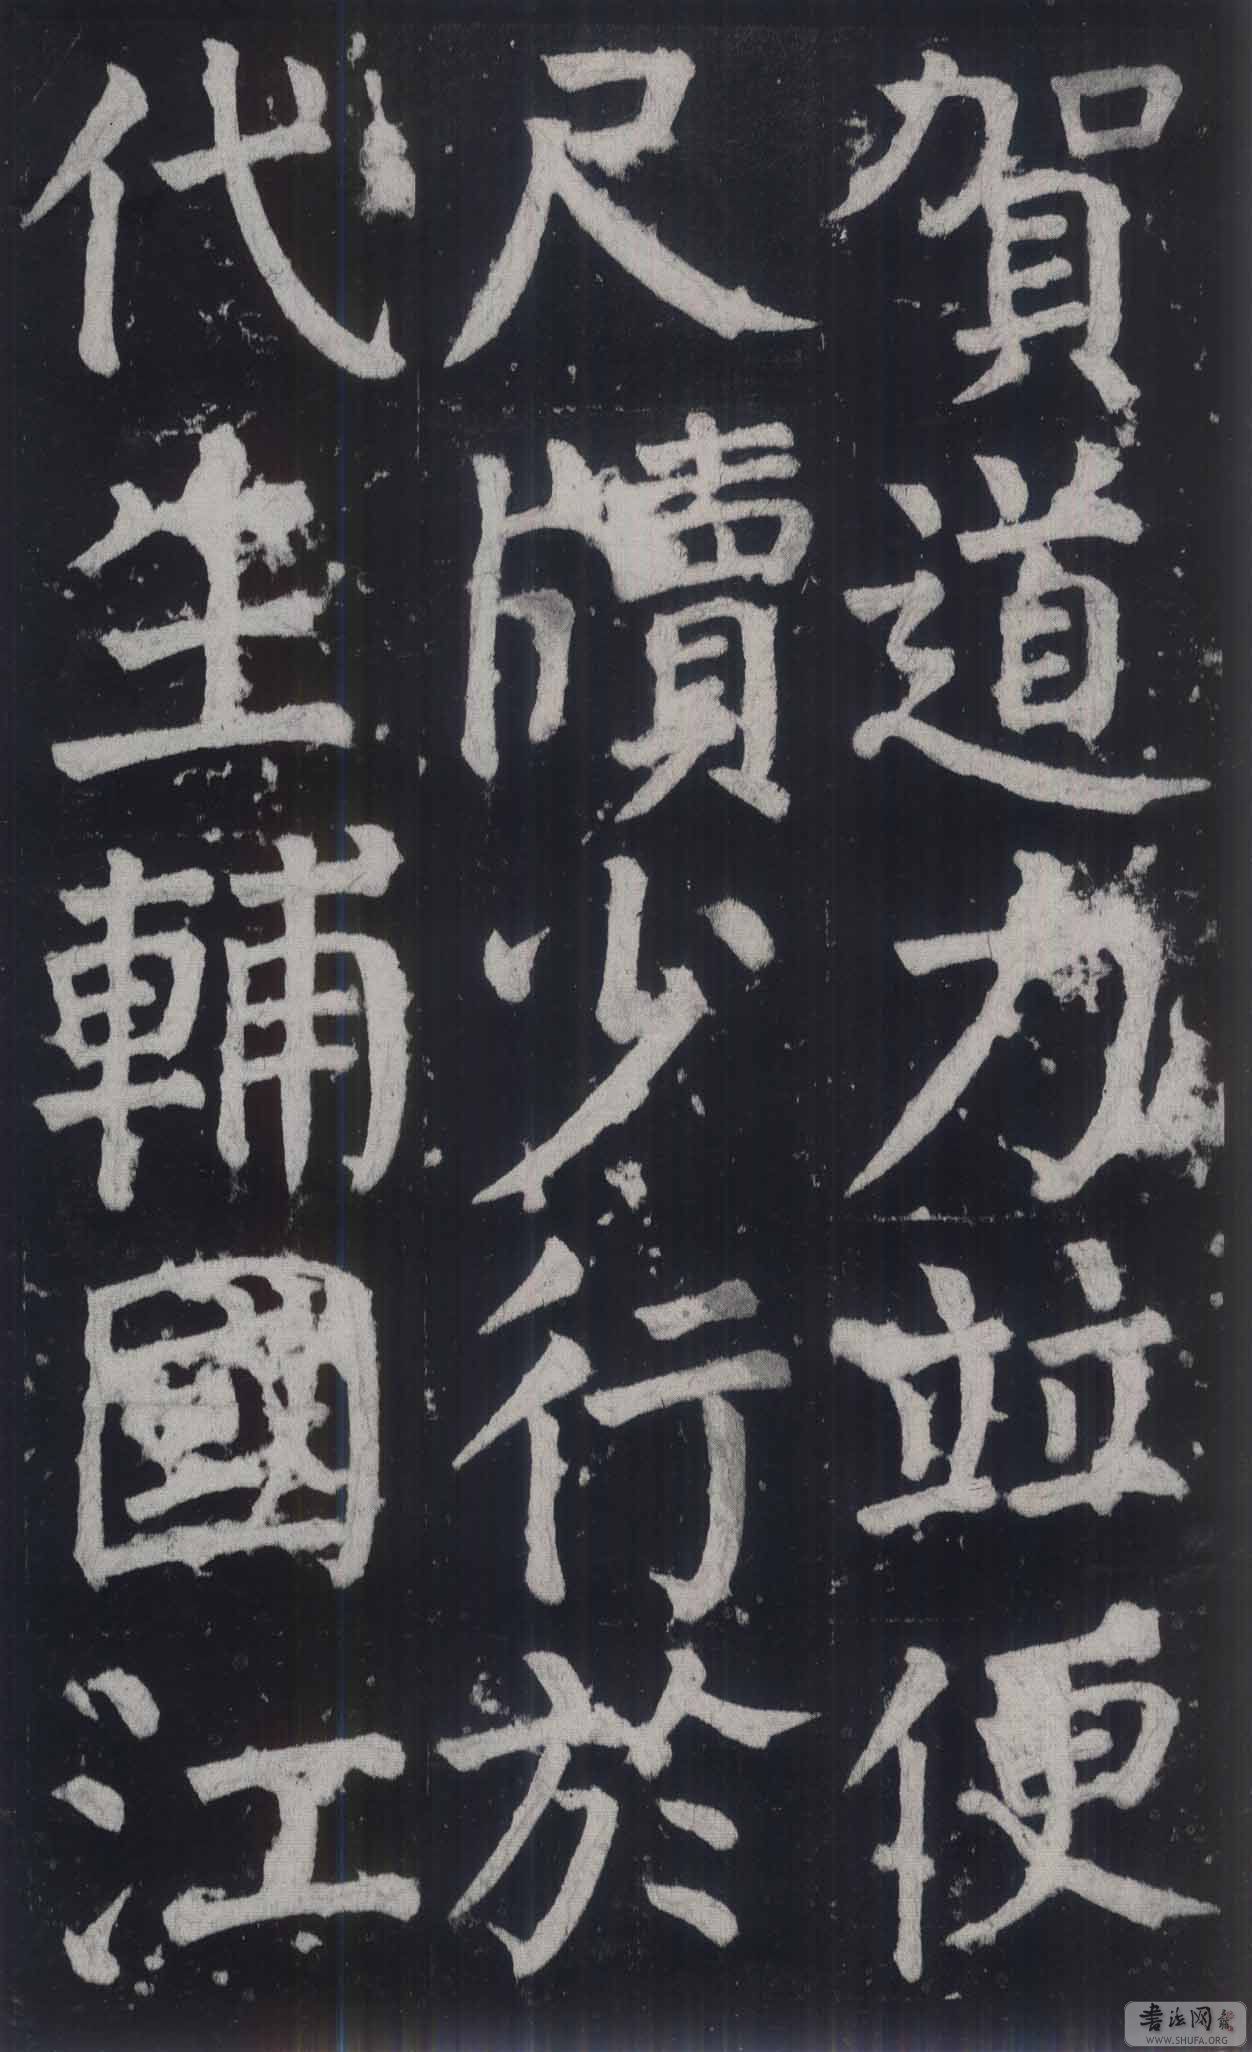 賀道力並便
尺牘少行於
代生輔國江
書法网
WWW.SHUFA.ORG